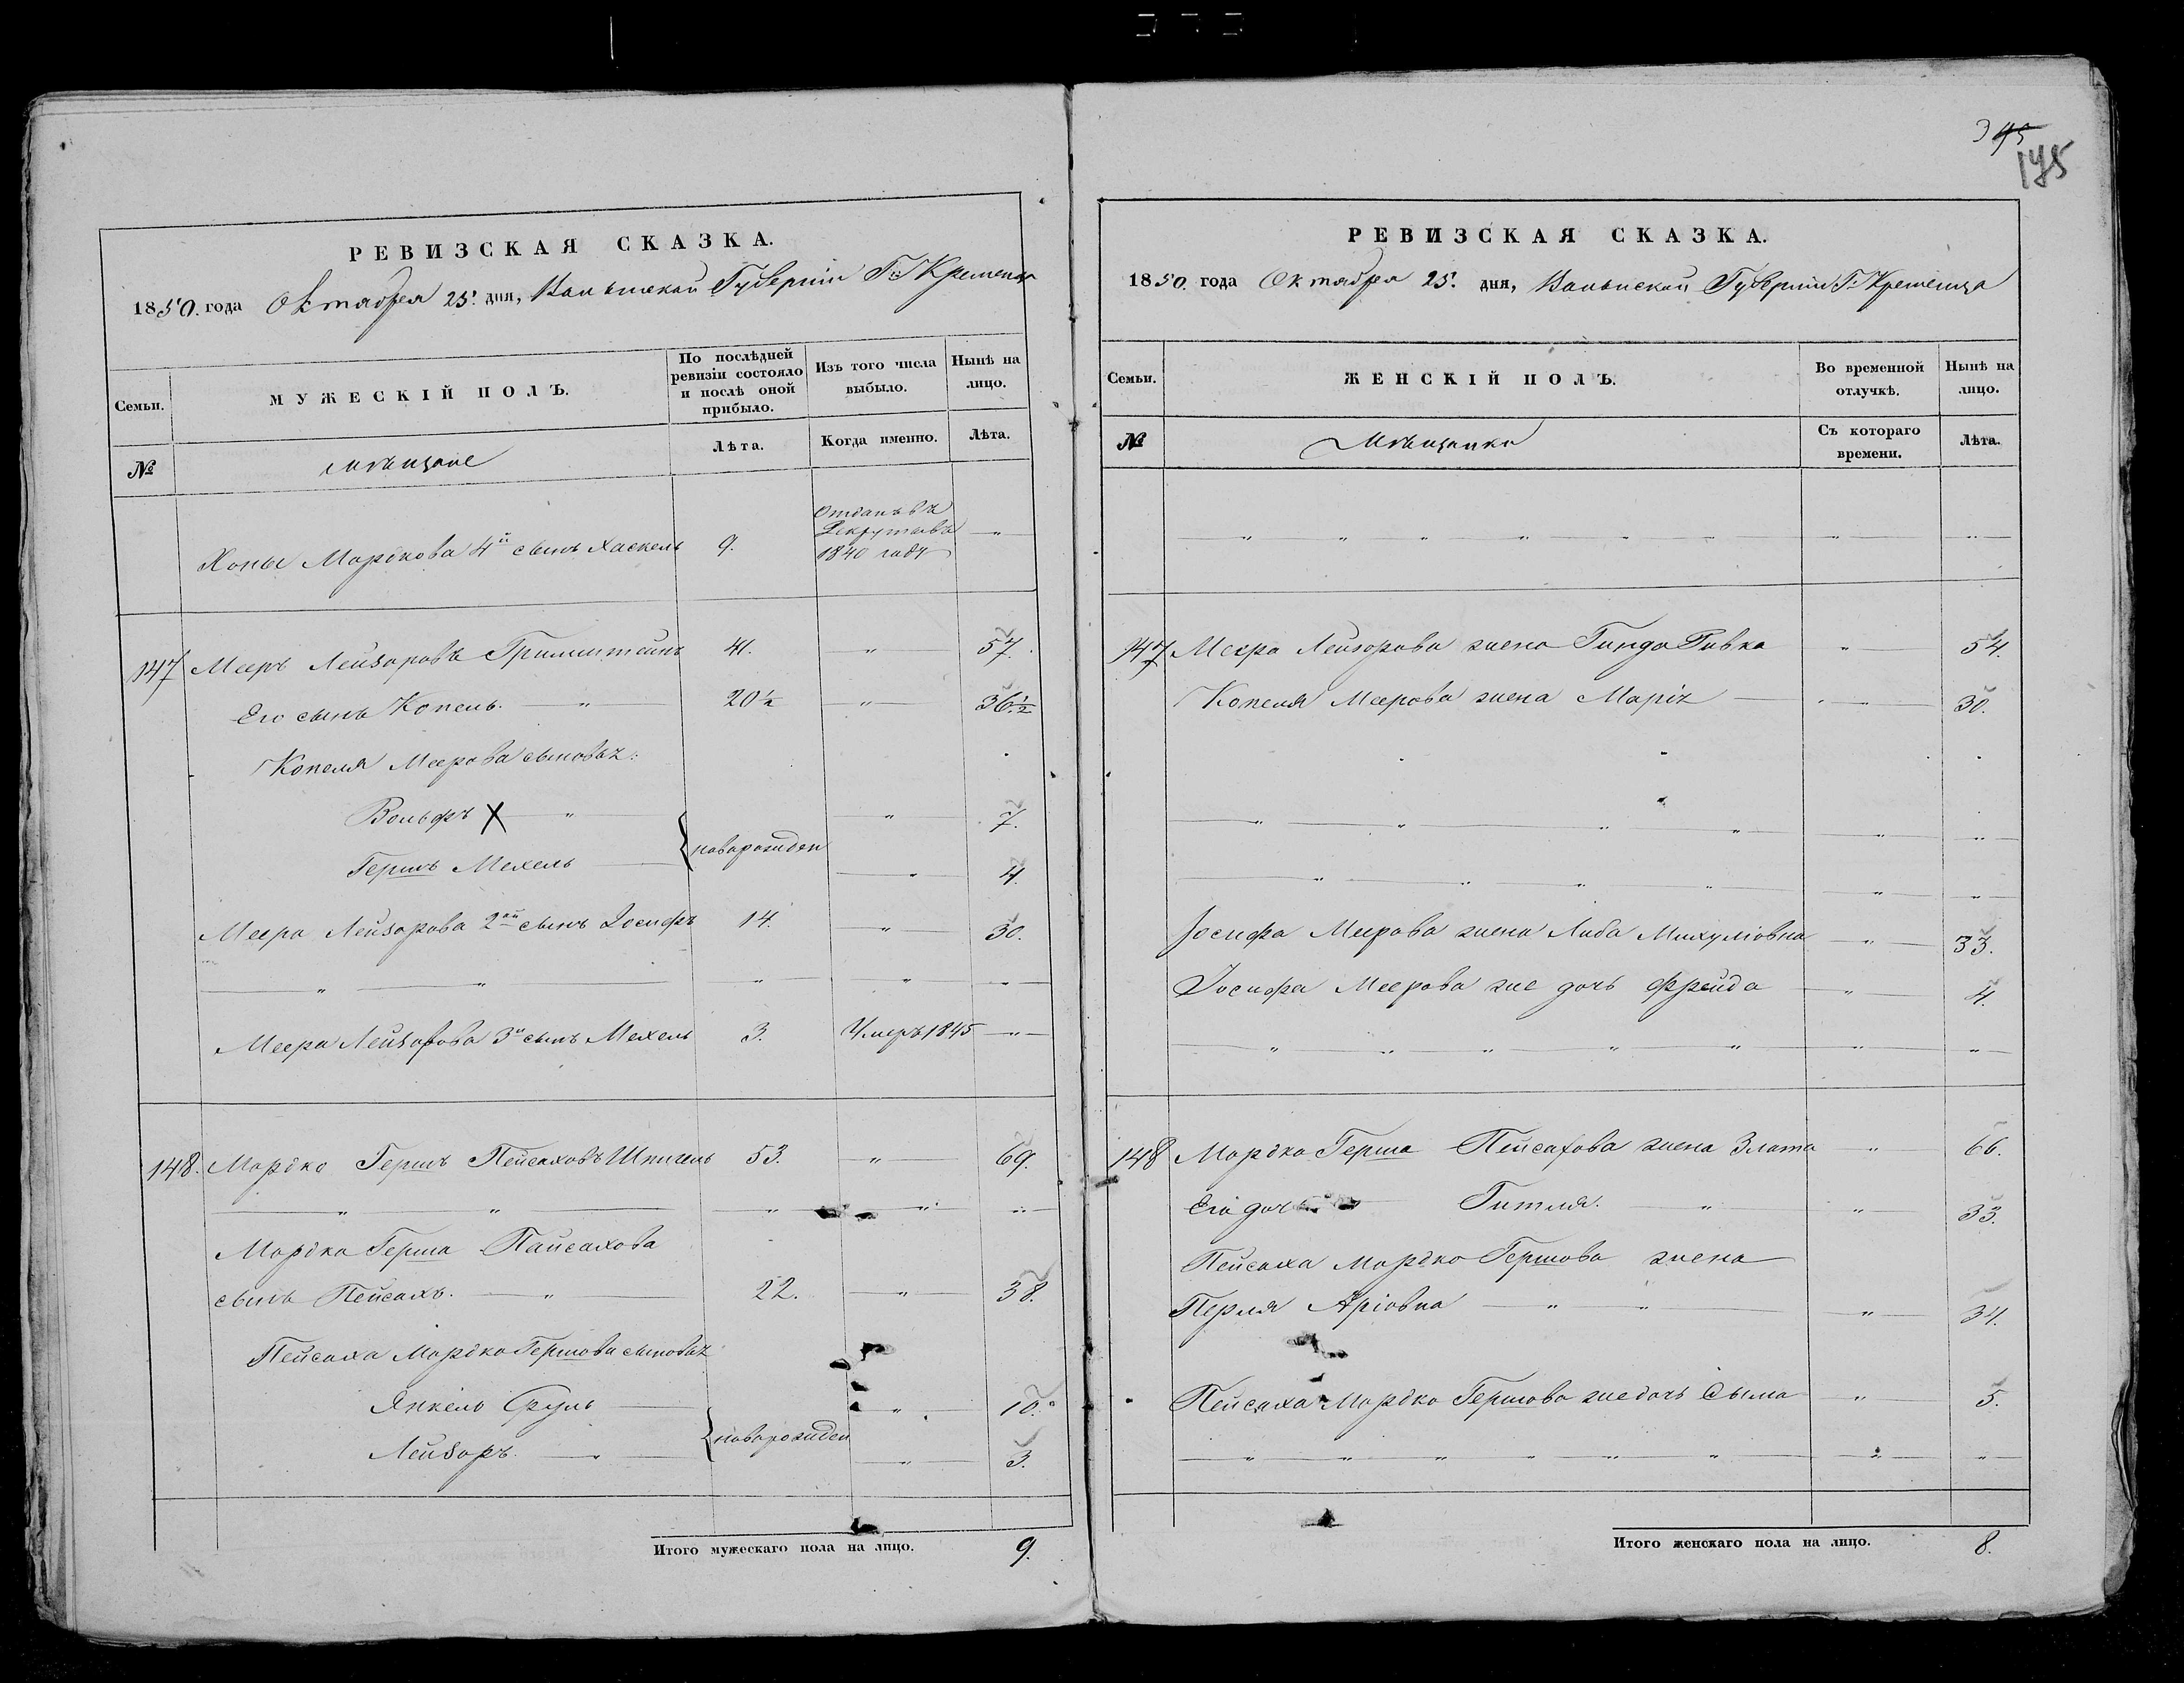 РЕВИЗСКАЯ СКАЗКА.
1850. года Октября 25. дня, Волынской Губернiи Г. Кременца
Семьи.
МУЖЕСКIЙ ПОЛЪ.
По послѣдней ревизiи состояло и послѣ оной прибыло.
Изъ того числа выбыло.
Нынѣ на лицо.
№
мѣщане
Лѣта.
Когда именно.
Лѣта.
Хоны Мордкова 4й сынъ Хаскель 9. Отданъ въ Рекруты въ 1840 году "
147 Мееръ Лейзоровъ Гринштейнъ 41. " 57.
Его сынъ Копель. " 20½ " 36.½
Копеля Меерова сыновья:
Вольфъ X " " 7.
новорожден
Гершъ Мехель " 4.
Меера Лейзорова 2ой сынъ Iосифъ 14. " 30.
" " " " "
Меера Лейзорова 3й сынъ Мехель 3. Умеръ 1845 "
148. Мордко Гершъ Пейсаховъ Шпигель 53. " 69.
" " " " "
Мордка Герша Пайсахова
сынъ Пейсахъ. " 22. " 38.
Пейсаха Мордко Гершова сыновья
Янкель Сруль " 10.
новорожден
Лейзоръ. " " 3.
Итого мужескаго пола на лицо. 9.
345
175
РЕВИЗСКАЯ СКАЗКА.
1850. года Октября 25. дня, Волынской Губернiи Г. Кременца
Семьи.
ЖЕНСКIЙ ПОЛЪ.
Во временной отлучкѣ.
Нынѣ на лицо.
№
Мѣщанки
Съ котораго времени.
Лѣта.
" " " " " " " "
147 Меера Лейзорова жена Гинда Ривка " 54.
Копеля Меерова жена Марiя " 30.
" " " " " "
" " " " " "
Iосифа Меерова жена Либа Михулiовна " 33.
Iосифа Меерова же дочь Фрейда " 4.
" " " " " " "
148 Мордка Герша Пейсахова жена Злата " 66.
Его дочь Гитля. " " 33.
Пейсаха Мордко Гершова жена
Перля Арiовна " " " 34.
Пейсаха Мордко Гершова же дочь Сыма " 5.
" " " " " " " "
Итого женскаго пола на лицо. 8.